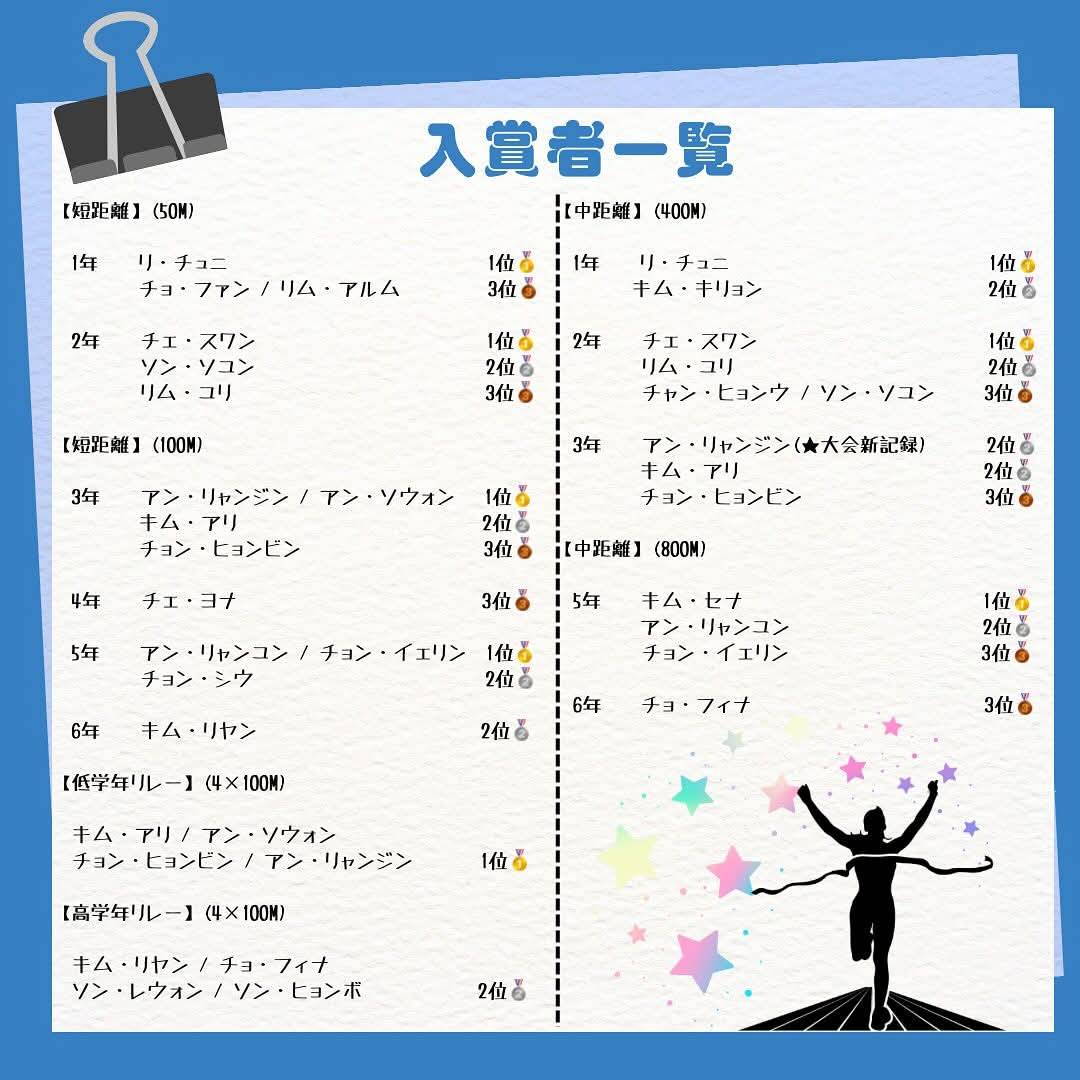 入賞者一覧
【短距離】(50M)
1年 リ・チュニ 1位🥇
チョ・ファン / リム・アルム 3位🥉
2年 チェ・スワン 1位🥇
ソン・ソユン 2位🥈
リム・ユリ 3位🥉
【短距離】(100M)
3年 アン・リャンジン / アン・ソウォン 1位🥇
キム・アリ 2位🥈
チョン・ヒョンビン 3位🥉
4年 チェ・ヨナ 3位🥉
5年 アン・リャンコン / チョン・イェリン 1位🥇
チョン・シウ 2位🥈
6年 キム・リヤン 2位🥈
【低学年リレー】(4×100M)
キム・アリ / アン・ソウォン
チョン・ヒョンビン / アン・リャンジン 1位🥇
【高学年リレー】(4×100M)
キム・リヤン / チョ・フィナ
ソン・レウォン / ソン・ヒョンボ 2位🥈
【中距離】(400M)
1年 リ・チュニ 1位🥇
キム・キリョン 2位🥈
2年 チェ・スワン 1位🥇
リム・ユリ 2位🥈
チャン・ヒョンウ / ソン・ソユン 3位🥉
3年 アン・リャンジン(★大会新記録) 2位🥈
キム・アリ 2位🥈
チョン・ヒョンビン 3位🥉
【中距離】(800M)
5年 キム・セナ 1位🥇
アン・リャンコン 2位🥈
チョン・イェリン 3位🥉
6年 チョ・フィナ 3位🥉